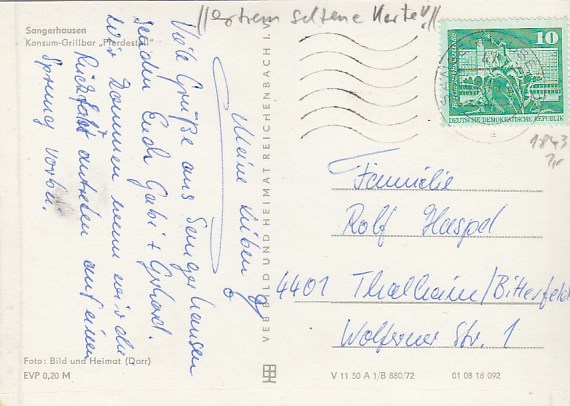 //extrem seltene Karte!!//
Sangerhausen
Konsum-Grillbar „Pferdestall"
Meine Lieben
Viele Grüße aus Sangerhausen
senden Euch Gabi + Gerhard.
Wir kommen wenn wir die
Rückfahrt antreten auf einen
Sprung vorbei.
Foto: Bild und Heimat (Qarr)
EVP 0,20 M
VEB BILD UND HEIMAT REICHENBACH I.V.
10
DEUTSCHE DEMOKRATISCHE REPUBLIK
1843
Familie
Rolf Haspel
4401 Thalheim/Bitterfeld
Wolfener Str. 1
V 11 50 A 1/B 880/72
01 08 16 092